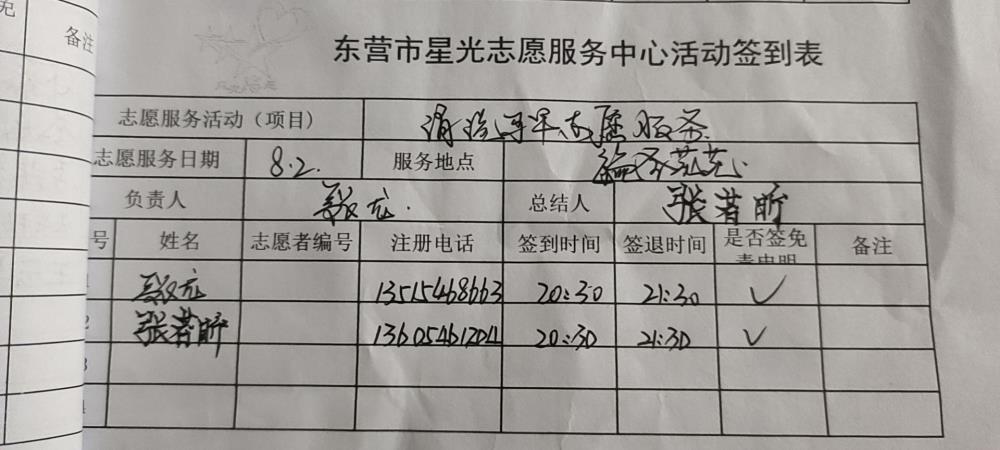 免
备注
东营市星光志愿服务中心活动签到表
志愿服务活动（项目） 志愿服务
志愿服务日期 8.2. 服务地点
负责人 总结人 张若昕
号 姓名 志愿者编号 注册电话 签到时间 签退时间 是否签免 备注
责申明
1 13515468663 20:30 21:30 ✓
2 张若昕 13605461204 20:30 21:30 ✓
3
4